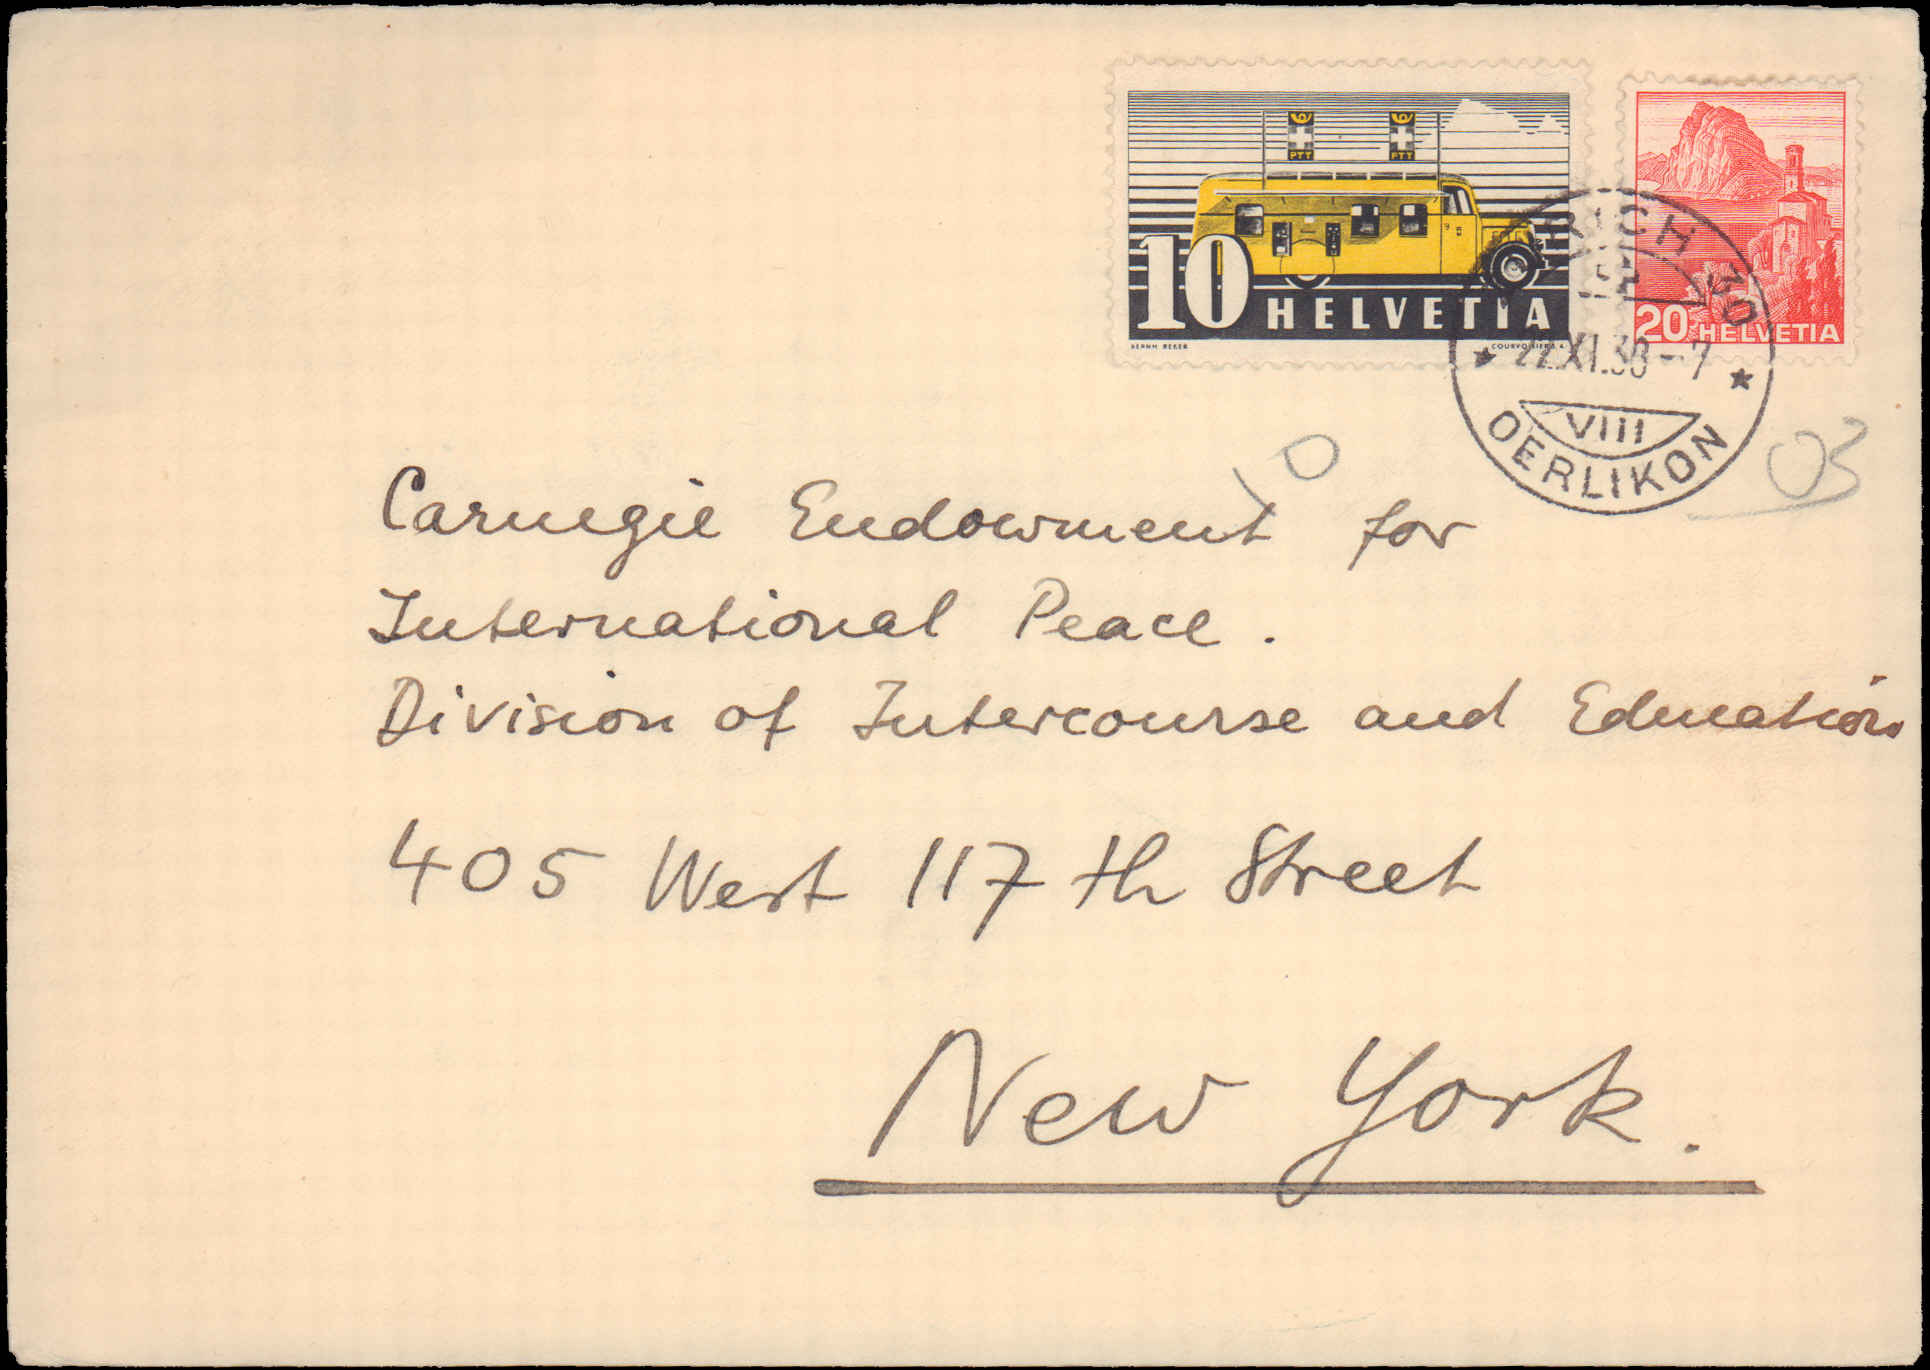 PTT PTT
10 HELVETIA
BERNH. REBER COURVOISIER S.A.
20 HELVETIA
ZÜRICH 30
22.XI.38-7
VIII
OERLIKON
10
03
Carnegie Endowment for
International Peace.
Division of Intercourse and Education
405 West 117th Street
New York.